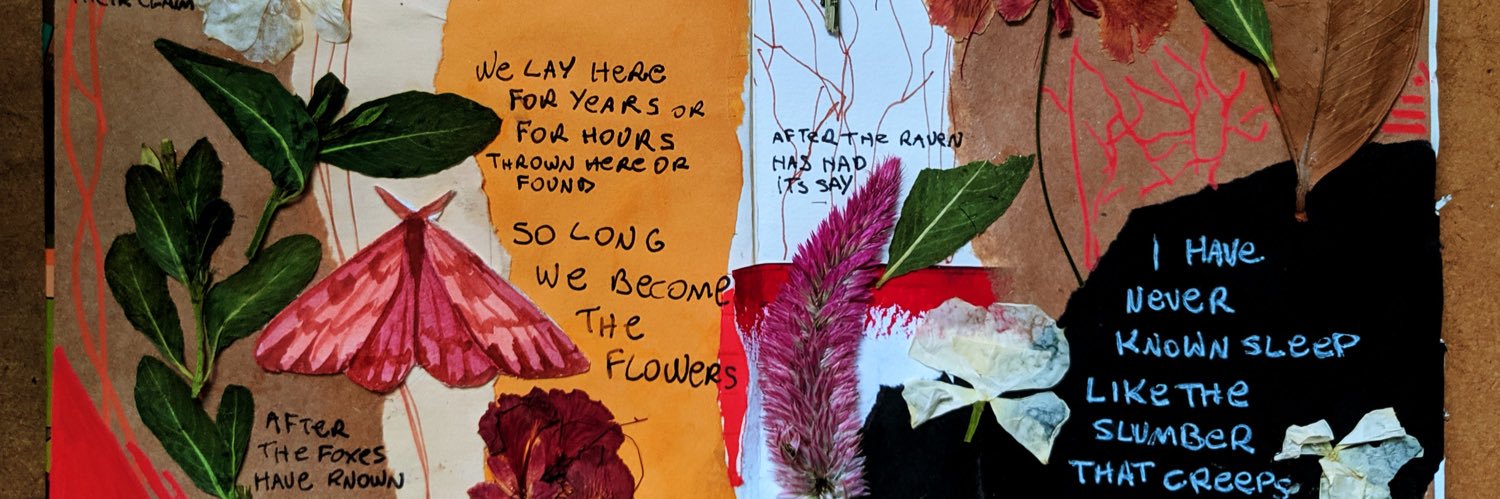 THEIR CLAIM
WE LAY HERE
FOR YEARS OR
FOR HOURS
THROWN HERE OR
FOUND
SO LONG
WE BECOME
THE
FLOWERS
AFTER
THE FOXES
HAVE KNOWN
AFTER THE RAVEN
HAS HAD
ITS SAY
I HAVE
NEVER
KNOWN SLEEP
LIKE THE
SLUMBER
THAT CREEPS